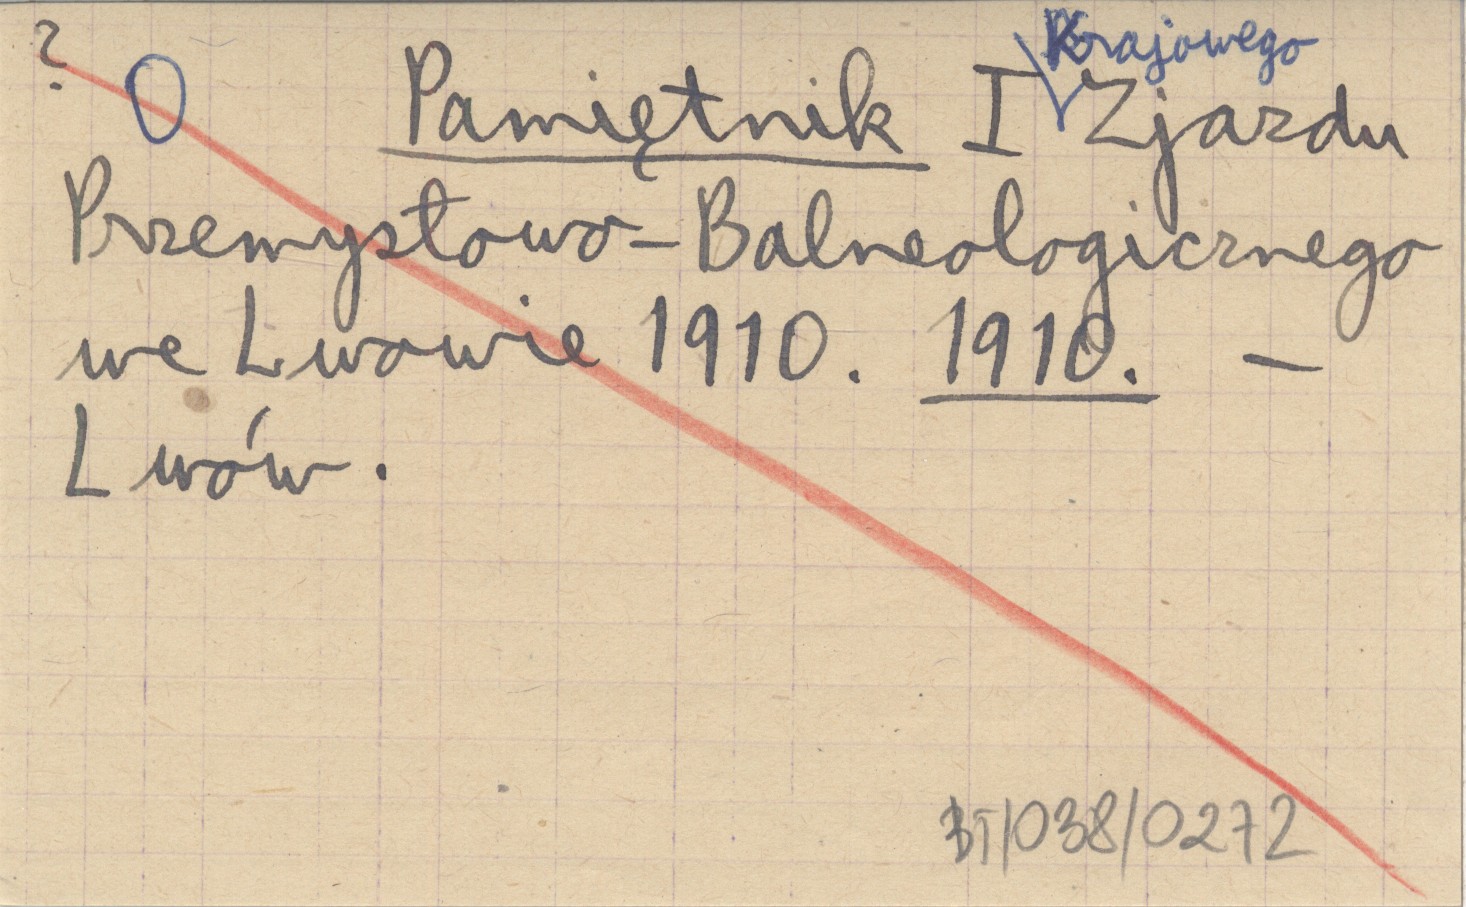 ? O Pamiętnik I Krajowego Zjazdu
Przemysłowo-Balneologicznego
we Lwowie 1910. 1910. —
Lwów.
BT/038/0272